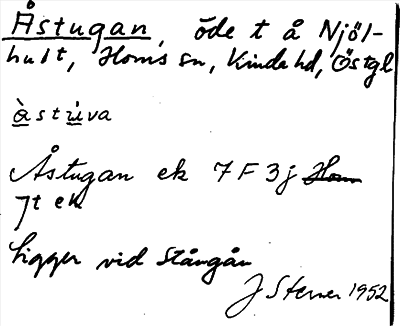 Åstugan, öde t å Njöl-
hult, Horns sn, Kinda hd, Östgl
àstu̇va
Åstugan ek 7 F 3j Horn
7t ek
Ligger vid Stångån
J Sterner 1952